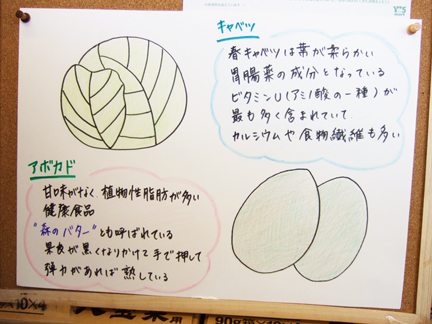 キャベツ
春キャベツは葉が柔らかい
胃腸薬の成分となっている
ビタミンU(アミノ酸の一種)が
最も多く含まれていて
カルシウムや食物繊維も多い
アボカド
甘味がなく植物性脂肪が多い
健康食品
"森のバター"とも呼ばれている
果皮が黒くなりかけて手で押して
弾力があれば熟している